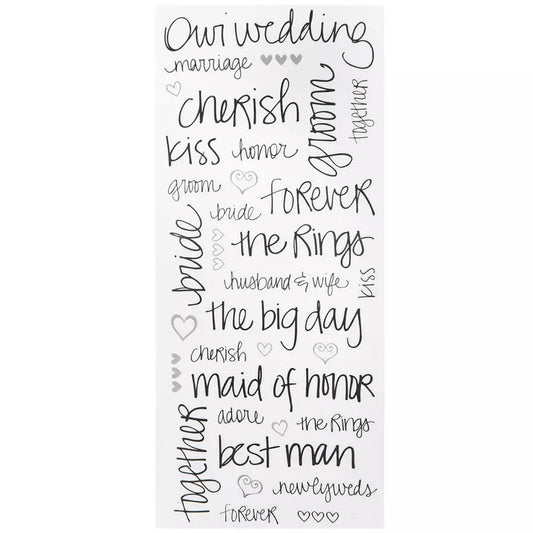 Our wedding
marriage
together
cherish
groom
kiss
honor
groom
forever
bride
bride
the Rings
husband & wife
kiss
the big day
cherish
maid of honor
together
adore
the Rings
best man
newlyweds
forever